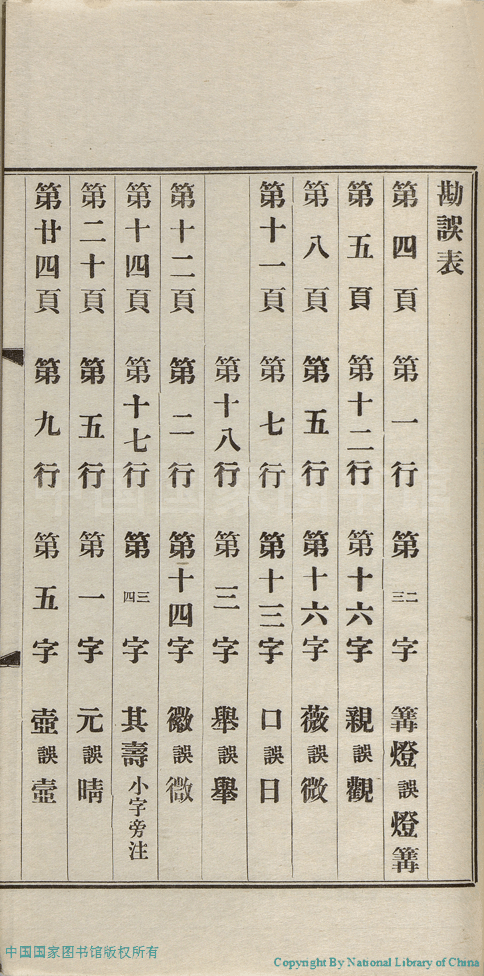 勘誤表
第四頁 第一行 第二三字 篝燈誤燈篝
第五頁 第十二行 第十六字 親誤觀
第八頁 第五行 第十六字 薇誤微
第十一頁 第七行 第十三字 口誤日
第十八行 第三字 舉誤舉
第十二頁 第二行 第十四字 徽誤微
第十四頁 第十七行 第三四字 其壽小字旁注
第二十頁 第五行 第一字 元誤晴
第廿四頁 第九行 第五字 壺誤壼
中国国家图书馆版权所有
Copyright By National Library of China